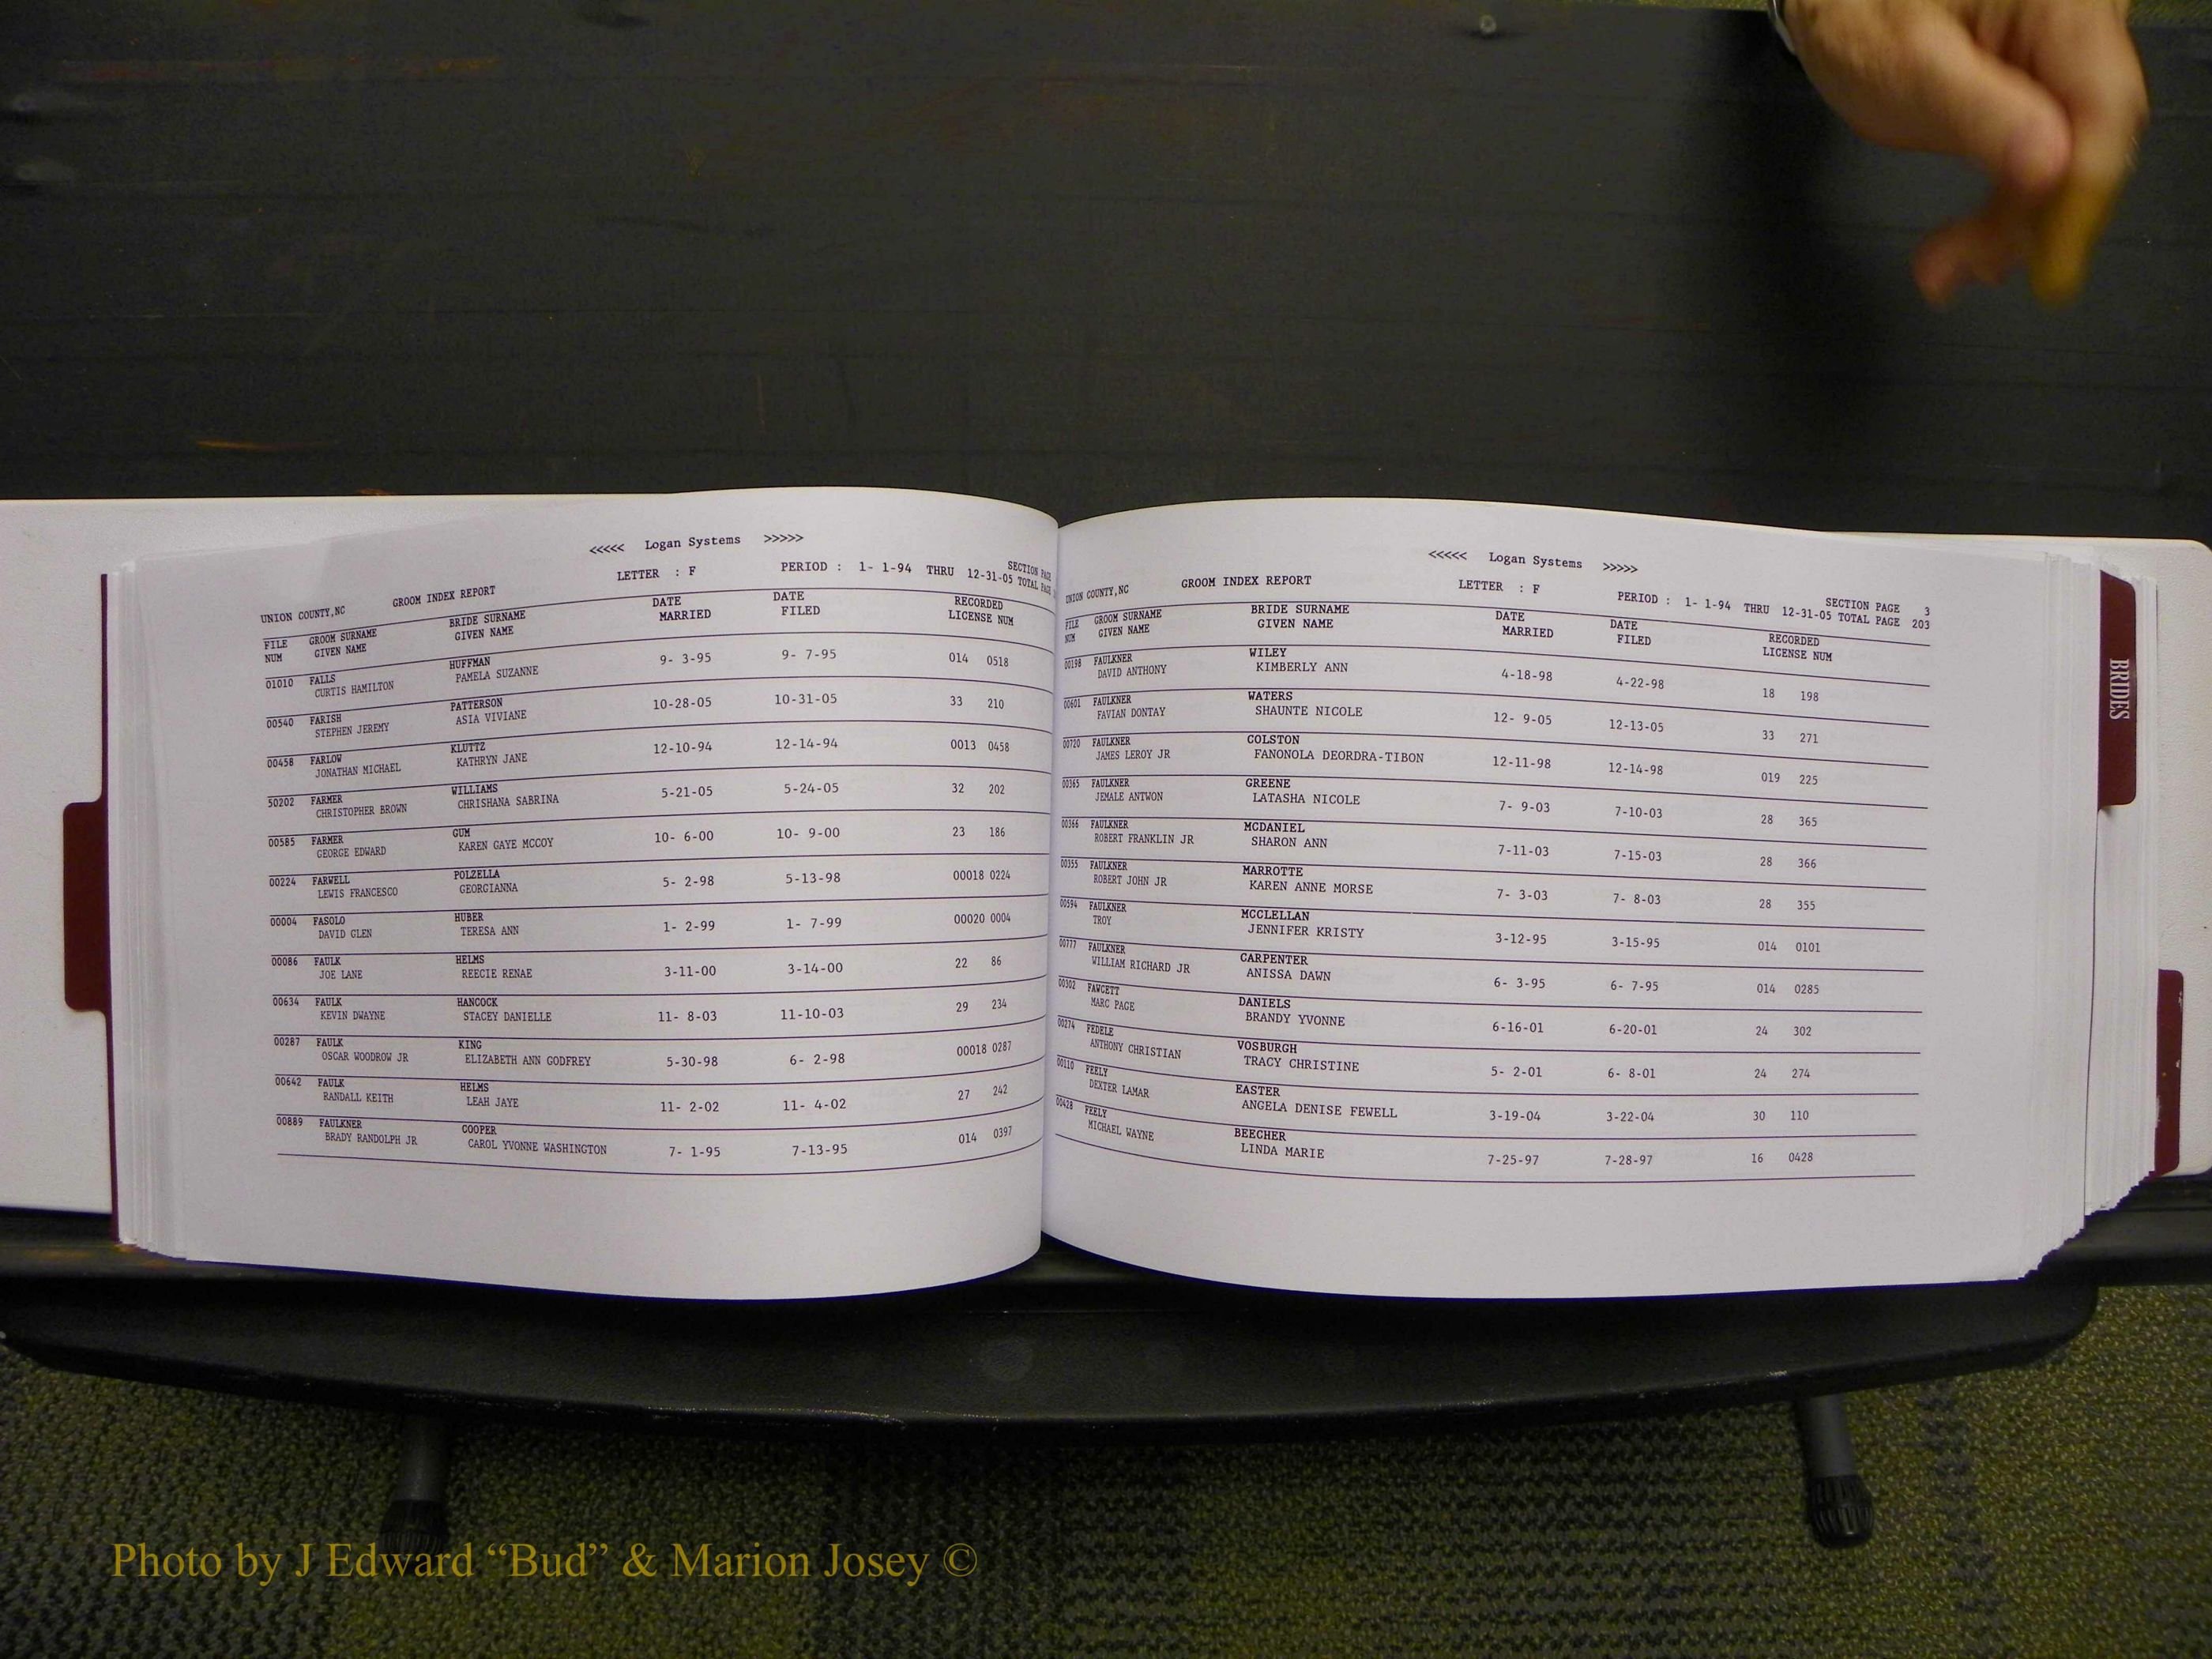 <<<<< Logan Systems >>>>>
UNION COUNTY,NC GROOM INDEX REPORT LETTER : F PERIOD : 1- 1-94 THRU 12-31-05 SECTION PAGE
TOTAL PAGE
FILE GROOM SURNAME BRIDE SURNAME DATE DATE RECORDED
NUM GIVEN NAME GIVEN NAME MARRIED FILED LICENSE NUM
01010 FALLS HUFFMAN 9- 3-95 9- 7-95 014 0518
CURTIS HAMILTON PAMELA SUZANNE
00540 FARISH PATTERSON 10-28-05 10-31-05 33 210
STEPHEN JEREMY ASIA VIVIANE
00458 FARLOW KLUTTZ 12-10-94 12-14-94 0013 0458
JONATHAN MICHAEL KATHRYN JANE
50202 FARMER WILLIAMS 5-21-05 5-24-05 32 202
CHRISTOPHER BROWN CHRISHANA SABRINA
00585 FARMER GUM 10- 6-00 10- 9-00 23 186
GEORGE EDWARD KAREN GAYE MCCOY
00224 FARWELL POLZELLA 5- 2-98 5-13-98 00018 0224
LEWIS FRANCESCO GEORGIANNA
00004 FASOLO HUBER 1- 2-99 1- 7-99 00020 0004
DAVID GLEN TERESA ANN
00086 FAULK HELMS 3-11-00 3-14-00 22 86
JOE LANE REECIE RENAE
00634 FAULK HANCOCK 11- 8-03 11-10-03 29 234
KEVIN DWAYNE STACEY DANIELLE
00287 FAULK KING 5-30-98 6- 2-98 00018 0287
OSCAR WOODROW JR ELIZABETH ANN GODFREY
00642 FAULK HELMS 11- 2-02 11- 4-02 27 242
RANDALL KEITH LEAH JAYE
00889 FAULKNER COOPER 7- 1-95 7-13-95 014 0397
BRADY RANDOLPH JR CAROL YVONNE WASHINGTON
<<<<< Logan Systems >>>>>
UNION COUNTY,NC GROOM INDEX REPORT LETTER : F PERIOD : 1- 1-94 THRU 12-31-05 SECTION PAGE 3
TOTAL PAGE 203
FILE GROOM SURNAME BRIDE SURNAME DATE DATE RECORDED
NUM GIVEN NAME GIVEN NAME MARRIED FILED LICENSE NUM
00198 FAULKNER WILEY 4-18-98 4-22-98 18 198
DAVID ANTHONY KIMBERLY ANN
00601 FAULKNER WATERS 12- 9-05 12-13-05 33 271
FAVIAN DONTAY SHAUNTE NICOLE
00720 FAULKNER COLSTON 12-11-98 12-14-98 019 225
JAMES LEROY JR FANONOLA DEORDRA-TIBON
00365 FAULKNER GREENE 7- 9-03 7-10-03 28 365
JEMALE ANTWON LATASHA NICOLE
00366 FAULKNER MCDANIEL 7-11-03 7-15-03 28 366
ROBERT FRANKLIN JR SHARON ANN
00355 FAULKNER MARROTTE 7- 3-03 7- 8-03 28 355
ROBERT JOHN JR KAREN ANNE MORSE
00594 FAULKNER MCCLELLAN 3-12-95 3-15-95 014 0101
TROY JENNIFER KRISTY
00777 FAULKNER CARPENTER 6- 3-95 6- 7-95 014 0285
WILLIAM RICHARD JR ANISSA DAWN
00302 FAWCETT DANIELS 6-16-01 6-20-01 24 302
MARC PAGE BRANDY YVONNE
00274 FEDELE VOSBURGH 5- 2-01 6- 8-01 24 274
ANTHONY CHRISTIAN TRACY CHRISTINE
00110 FEELY EASTER 3-19-04 3-22-04 30 110
DEXTER LAMAR ANGELA DENISE FEWELL
00428 FEELY BEECHER 7-25-97 7-28-97 16 0428
MICHAEL WAYNE LINDA MARIE
BRIDES
Photo by J Edward “Bud” & Marion Josey ©